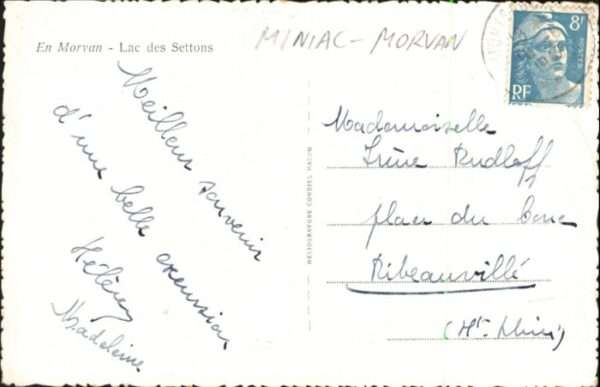 En Morvan - Lac des Settons
MINIAC-MORVAN
8F
RF
Meilleur souvenir
d'une belle excursion
Hélène
Madeleine
HÉLIOGRAVURE COMBIER MACON
Mademoiselle
Irène Rudloff
place du
Ribeauvillé
(Ht. Rhin)